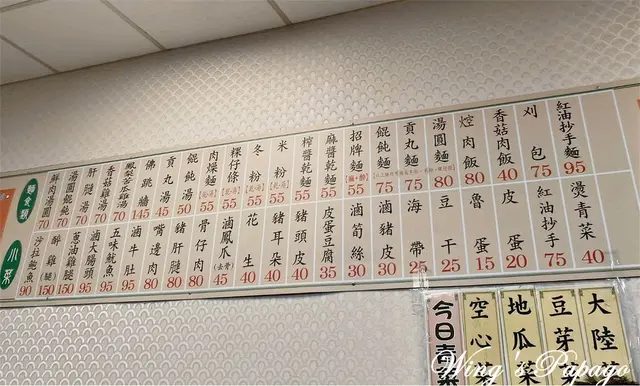 麵食類
鮮肉湯圓 70
湯圓餛飩 70
肝膶湯 70
香菇雞湯 70
鳳梨苦瓜雞湯 70
佛跳牆 145
貢丸湯 45
餛飩湯 50
肉燥麵(乾/湯) 55
粿仔條(乾/湯) 55
冬粉(乾/湯) 55
米粉(乾/湯) 55
榨醬乾麵 55
麻醬乾麵 55
招牌麵 55
餛飩麵 75
貢丸麵 75
湯圓麵 80
焢肉飯 80
香菇肉飯 40
刈包 75
紅油抄手麵 95
小菜
沙拉鮑魚 90
醉雞(腿) 150
蔥油雞腿 150
滷大腸頭 95
五味魷魚 95
滷牛肚 95
嘴邊肉 80
豬肝膶 80
骨仔肉 80
滷鳳爪(去骨) 45
花生 40
豬耳朵 40
豬頭皮 40
皮蛋豆腐 35
滷筍絲 30
滷豬皮 30
海帶 25
豆干 25
魯蛋 15
皮蛋 20
紅油抄手 75
燙青菜 40
今日青菜
空心菜
地瓜菜
豆芽
大陸
Wing's Papago